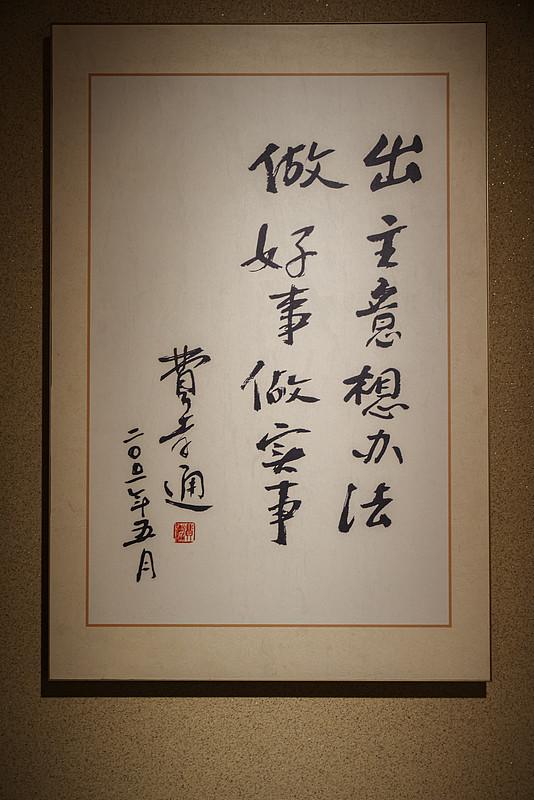 出主意想办法
做好事做实事
費孝通
二〇〇一年五月